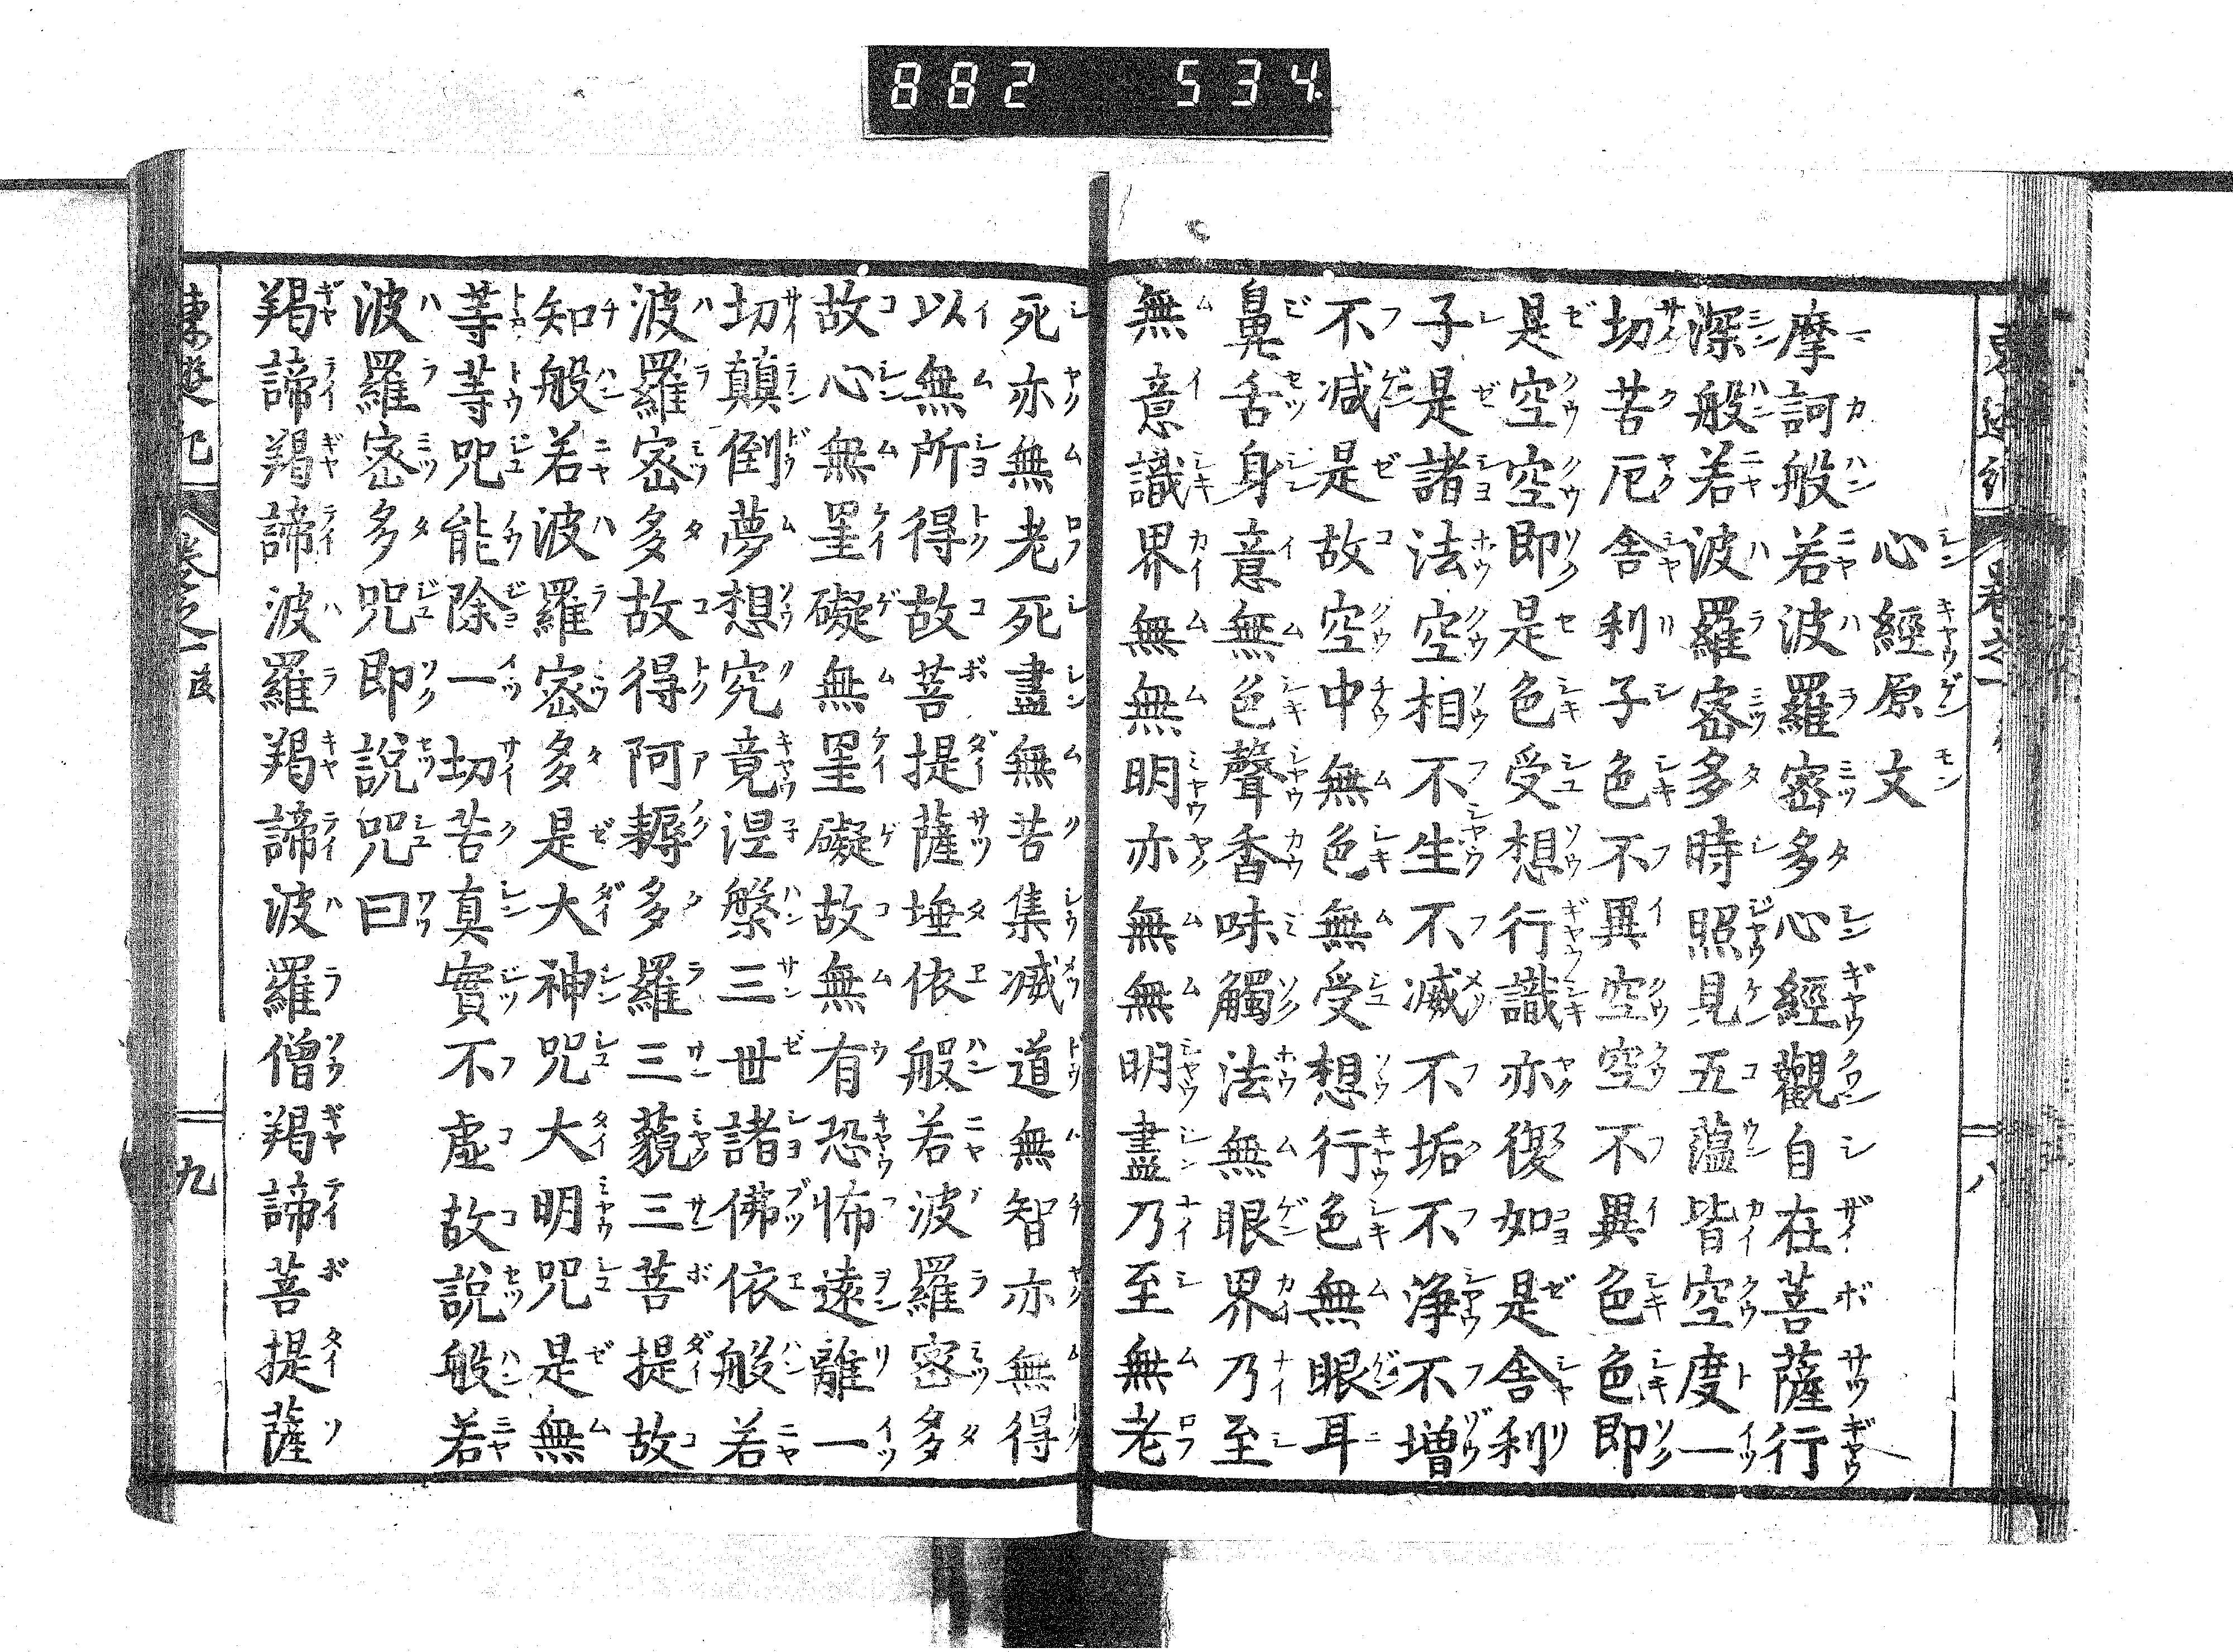 882 534.
心經原文
摩訶般若波羅密多心經觀自在菩薩行
深般若波羅密多時照見五蘊皆空度一
切苦厄舍利子色不異空空不異色色即
是空空即是色受想行識亦復如是舍利
子是諸法空相不生不滅不垢不淨不增
不减是故空中無色無受想行色無眼耳
鼻舌身意無色聲香味觸法無眼界乃至
無意識界無無明亦無無明盡乃至無老
死亦無老死盡無苦集滅道無智亦無得
以無所得故菩提薩埵依般若波羅密多
故心無罣礙無罣礙故無有恐怖遠離一
切顛倒夢想究竟涅槃三世諸佛依般若
波羅密多故得阿耨多羅三藐三菩提故
知般若波羅密多是大神呪大明呪是無
等等呪能除一切苦真實不虛故說般若
波羅密多呪即說呪曰
羯諦羯諦波羅羯諦波羅僧羯諦菩提薩
東遊記 卷之一 九